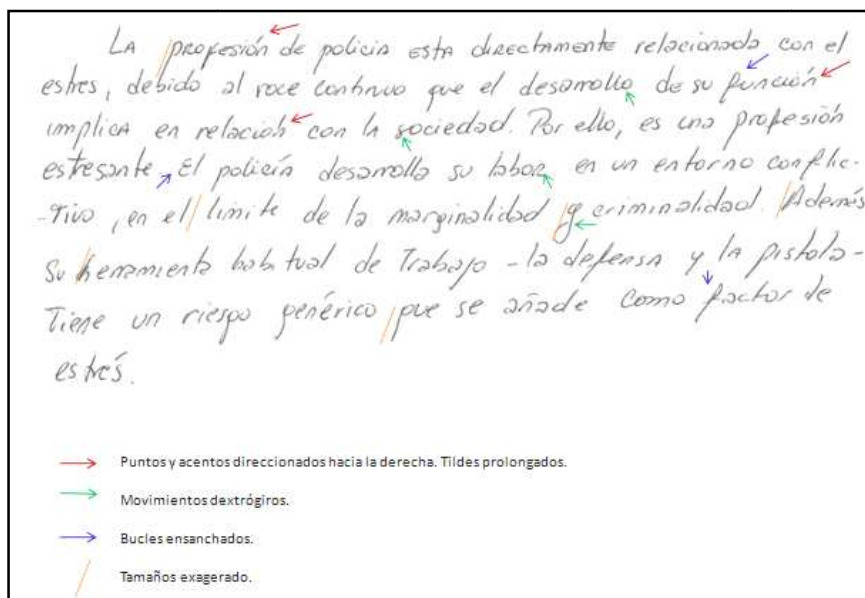 LA profesión de policia esta directamente relacionada con el
estres, debido al roce continuo que el desarrollo de su función
implica en relación con la sociedad. Por ello, es una profesión
estresante. El policía desarrolla su labor, en un entorno conflic-
-Tivo, en el limite de la marginalidad y criminalidad. Además
su herramienta habitual de Trabajo - la defensa y la pistola -
Tiene un riesgo genérico que se añade como factor de
estrés.
Puntos y acentos direccionados hacia la derecha. Tildes prolongados.
Movimientos dextrógiros.
Bucles ensanchados.
Tamaños exagerado.